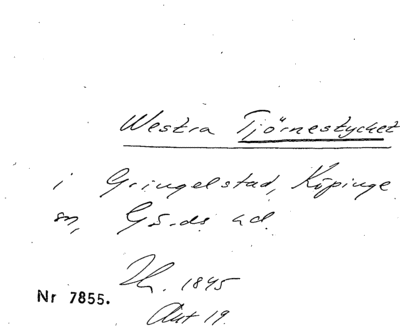 Westra Tjörnestycket
i Gringelstad, Köpinge
sn, Gärds hd.
Lh. 1845
Nr 7855.
Akt 19.